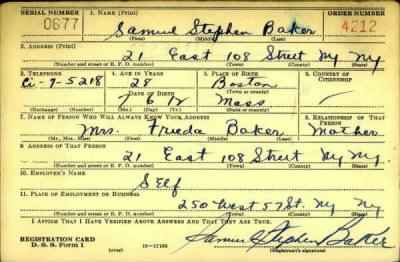 SERIAL NUMBER 1. NAME (Print) ORDER NUMBER
0677 Samuel Stephen Baker 4212
(First) (Middle) (Last)
2. ADDRESS (Print)
21 East 108 Street Ny Ny
(Number and street or R. F. D. number) (Town) (County) (State)
3. TELEPHONE 4. AGE IN YEARS 5. PLACE OF BIRTH 6. COUNTRY OF CITIZENSHIP
Ci-7-5218 28 Boston
DATE OF BIRTH (Town or county)
7 6 12 Mass
(Exchange) (Number) (Mo.) (Day) (Yr.) (State or country)
7. NAME OF PERSON WHO WILL ALWAYS KNOW YOUR ADDRESS 8. RELATIONSHIP OF THAT PERSON
Mrs. Frieda Baker Mother
(Mr., Mrs., Miss) (First) (Middle) (Last)
9. ADDRESS OF THAT PERSON
21 East 108 Street Ny Ny
(Number and street or R. F. D. number) (Town) (County) (State)
10. EMPLOYER'S NAME
Self
11. PLACE OF EMPLOYMENT OR BUSINESS
250 West 57 St. Ny Ny
(Number and street or R. F. D. number) (Town) (County) (State)
I AFFIRM THAT I HAVE VERIFIED ABOVE ANSWERS AND THAT THEY ARE TRUE.
REGISTRATION CARD
D. S. S. Form 1 (over) 16—17105 Samuel Stephen Baker
(Registrant's signature)